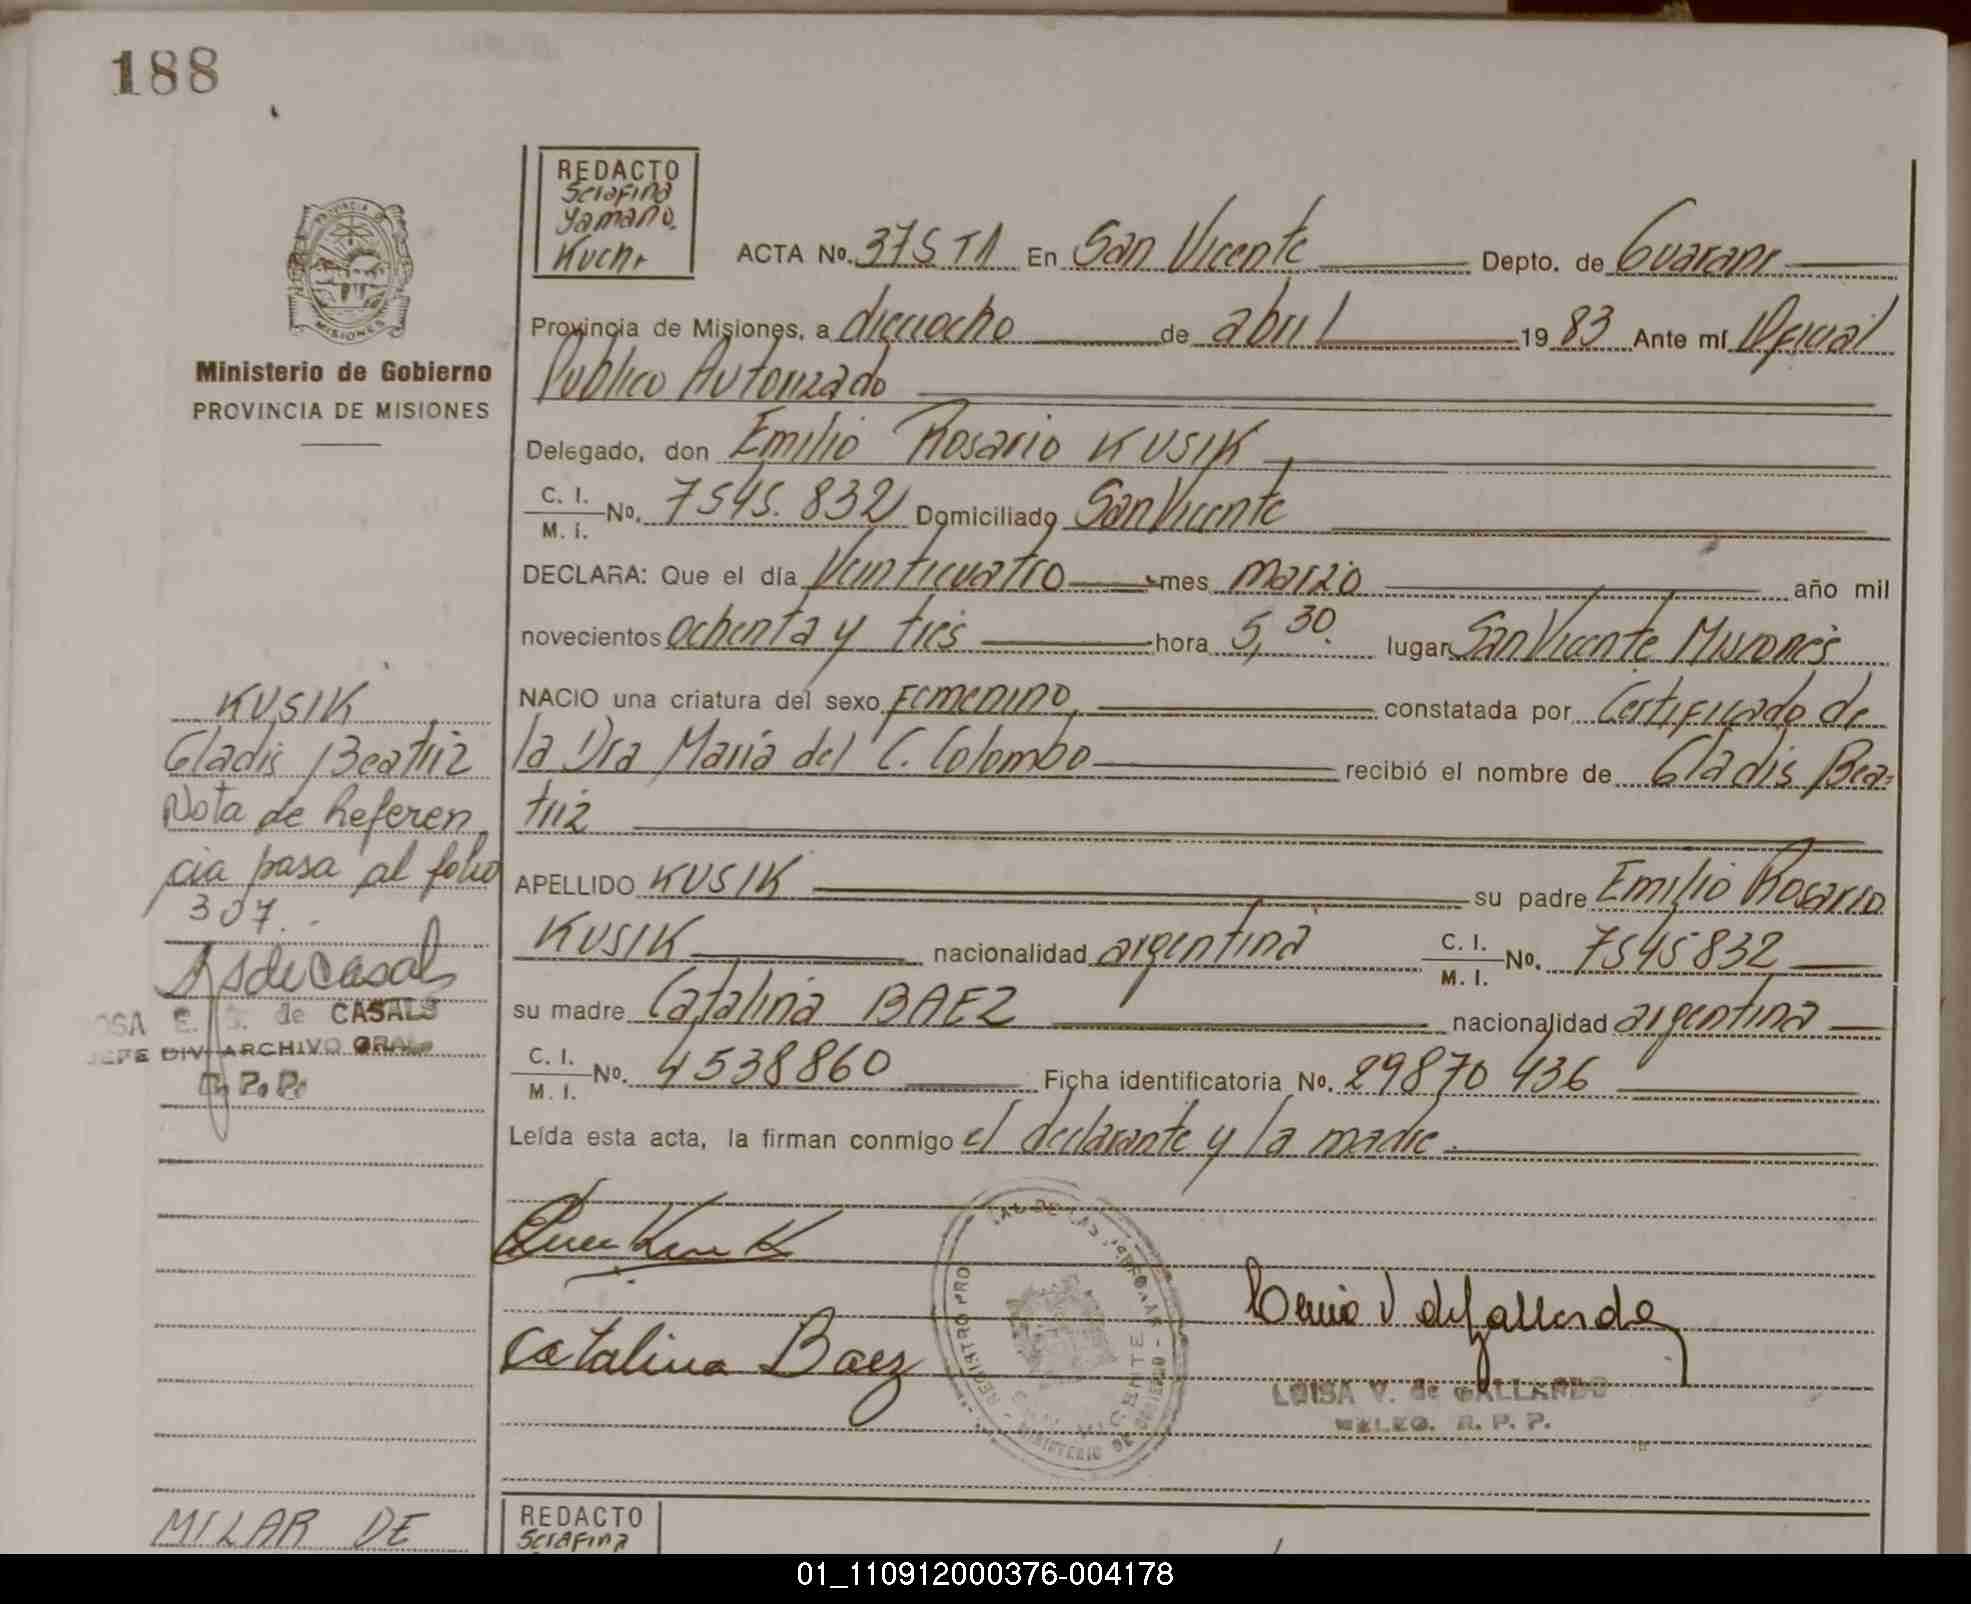 188
REDACTO
Serafina
Yamano.
Kuchr
ACTA No. 375 TA En San Vicente Depto. de Guarani
PROVINCIA DE
MISIONES
Provincia de Misiones, a dieciocho de abril 1983 Ante mí Oficial
Ministerio de Gobierno
PROVINCIA DE MISIONES
Publico Autorizado
Delegado, don Emilio Rosario KUSIK
C. I.
M. I. No. 7545.832 Domiciliado San Vicente
DECLARA: Que el día Veinticuatro mes marzo año mil
novecientos ochenta y tres hora 5,30. lugar San Vicente Misiones
NACIO una criatura del sexo Femenino, constatada por Certificado de
la Dra Maria del C. Colombo recibió el nombre de Gladis Bea=
triz
APELLIDO KUSIK su padre Emilio Rosario
KUSIK nacionalidad argentina C. I.
M. I. No. 7545832
su madre Catalina BAEZ nacionalidad argentina
C. I.
M. I. No. 4538860 Ficha identificatoria No. 29870436
Leída esta acta, la firman conmigo el declarante y la madre.
KUSIK
Gladis Beatriz
Nota de Referen
cia pasa al folio
307.
de Casals
OSA E. S. de CASALS
JEFE DIV. ARCHIVO GRAL
R. P. P.
Catalina Baez
V de Gallardo
REGISTRO PRO
DE LAS PERSONAS
VICENTE
MINISTERIO DE GOBIERNO
LUISA V. de GALLARDO
DELEG. R. P. P.
MILAR DE
REDACTO
Serafina
01_110912000376-004178